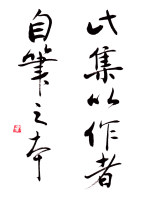 此集以作者
自筆之本